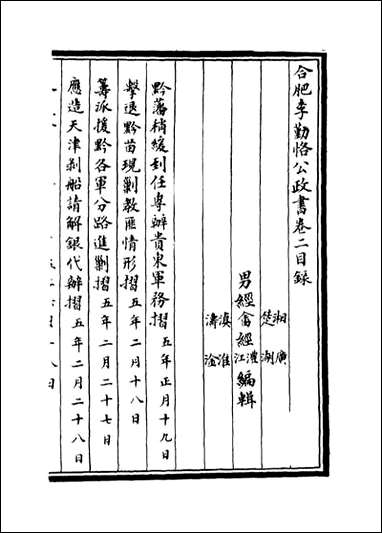 合肥李勤恪公政書卷二目錄
湘 廣
楚 湖
男經畬經澧江編輯
滇 淮
濤 淦
黔藩稍緩到任專辦貴東軍務摺 五年正月十九日
擊退黔苗現剿教匪情形摺 五年二月十八日
籌派援黔各軍分路進剿摺 五年二月二十七日
應造天津剝船請解銀代辦摺 五年二月二十八日